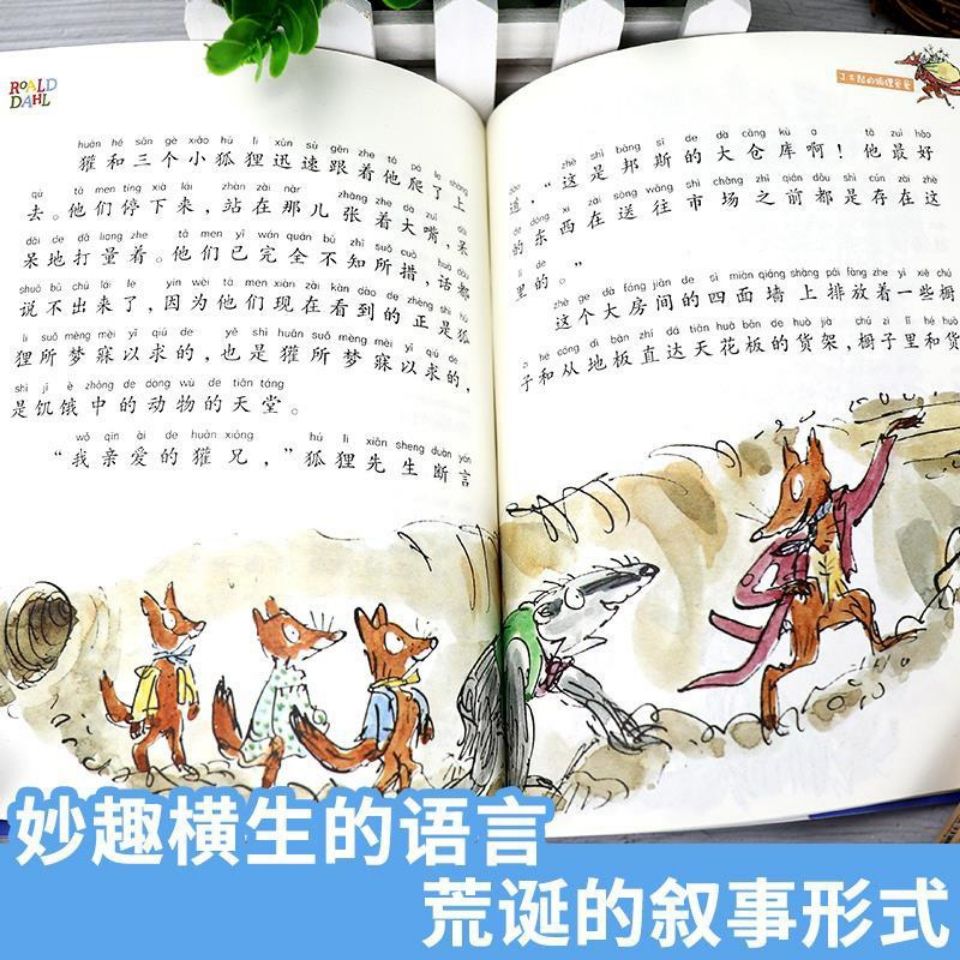 ROALD
DAHL
huān hé sān gè xiǎo hú li xùn sù gēn zhe tā pá le shàng
獾和三个小狐狸迅速跟着他爬了上
qù tā men tíng xià lái zhàn zài nàr zhāng zhe dà zuǐ dāi
去。他们停下来，站在那儿张着大嘴，呆
dāi de dǎ liang zhe tā men yǐ wán quán bù zhī suǒ cuò huà dōu
呆地打量着。他们已完全不知所措，话都
shuō bù chū lái le yīn wèi tā men xiàn zài kàn dào de zhèng shì hú
说不出来了，因为他们现在看到的正是狐
li suǒ mèng mèi yǐ qiú de yě shì huān suǒ mèng mèi yǐ qiú de
狸所梦寐以求的，也是獾所梦寐以求的，
shì jī è zhōng de dòng wù de tiān táng
是饥饿中的动物的天堂。
wǒ qīn ài de huān xiōng hú li xiān sheng duàn yán
“我亲爱的獾兄，”狐狸先生断言
了不起的狐狸爸爸
dào zhè shì bāng sī de dà cāng kù a tā zuì hǎo
道，“这是邦斯的大仓库啊！他最好
de dōng xi zài sòng wǎng shì chǎng zhī qián dōu shì cún zài zhè
的东西在送往市场之前都是存在这
lǐ de
里的。”
zhè ge dà fáng jiān de sì miàn qiáng shàng pái fàng zhe yì xiē chú
这个大房间的四面墙上排放着一些橱
zi hé cóng dì bǎn zhí dá tiān huā bǎn de huò jià chú zi lǐ hé huò
子和从地板直达天花板的货架，橱子里和货
妙趣横生的语言
荒诞的叙事形式